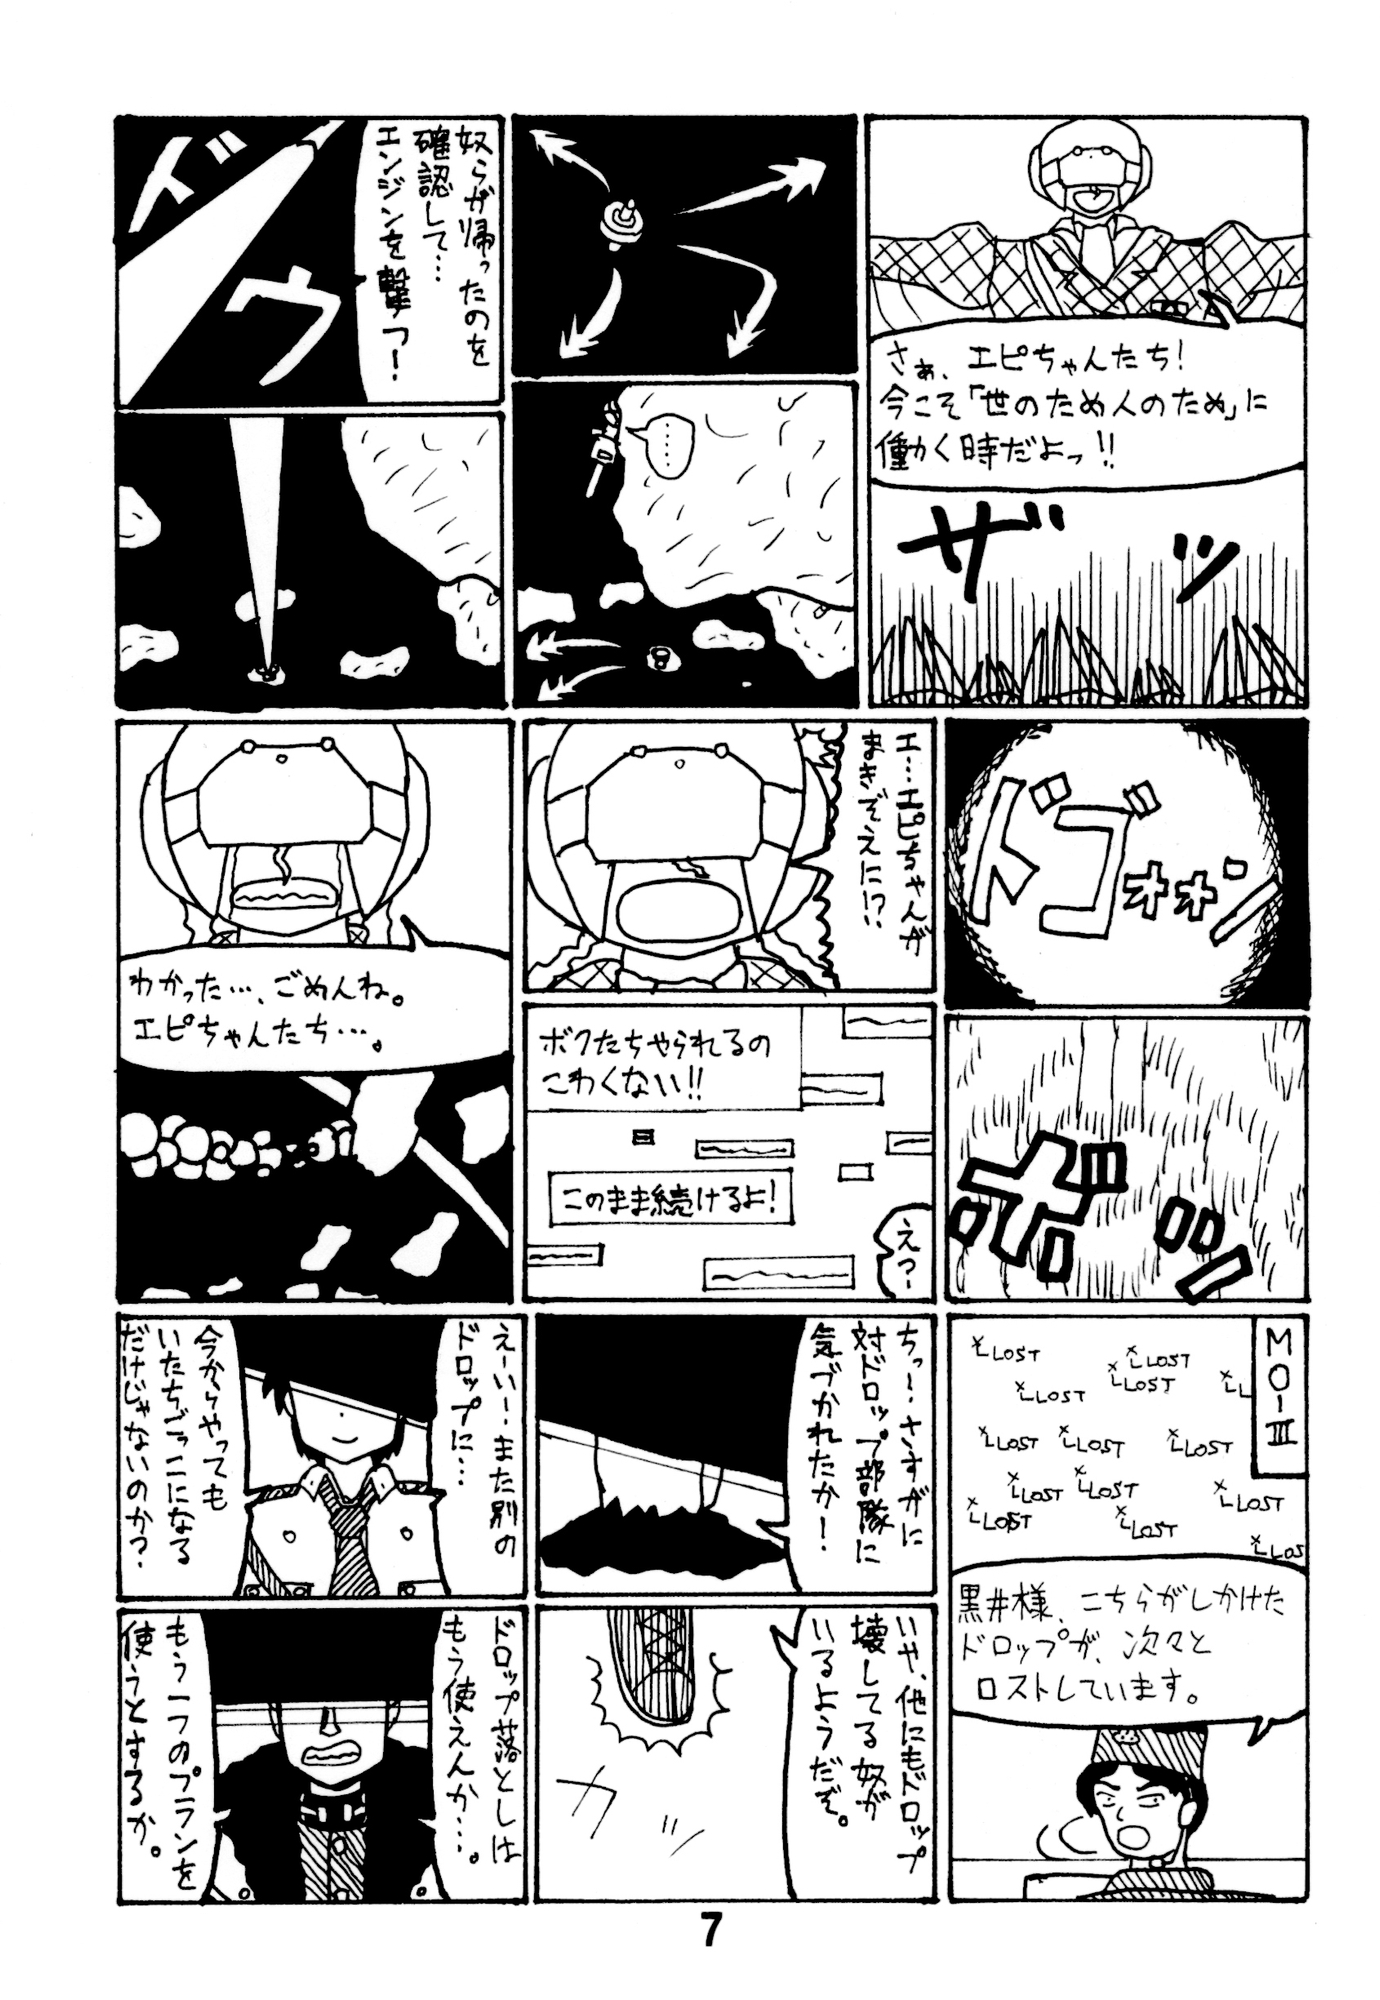 さぁ、エピちゃんたち!
今こそ「世のため人のため」に
働く時だよっ!!
ザッ
……
奴らが帰ったのを
確認して…
エンジンを撃つ!
ドウ
ドゴォォン
ボッ
エ…エピちゃんが
まきぞえに!?
ボクたちやられるの
こわくない!!
このまま続けるよ!
え?
わかった…、ごめんね。
エピちゃんたち…。
MO-Ⅲ
LOST
LOST
LOST
LOST
L
LOST
LOST
LOST
LOST
LOST
LOST
LOST
LOST
LOST
LOS
黒井様、こちらがしかけた
ドロップが、次々と
ロストしています。
ちっ…さすがに
対ドロップ部隊に
気づかれたか!
いや、他にもドロップ
壊してる奴が
いるようだぞ。
カッ
えーい…また別の
ドロップに…
今からやっても
いたちごっこになる
だけじゃないのか?
ドロップ落としは
もう使えんか…。
もう一つのプランを
使うとするか。
7